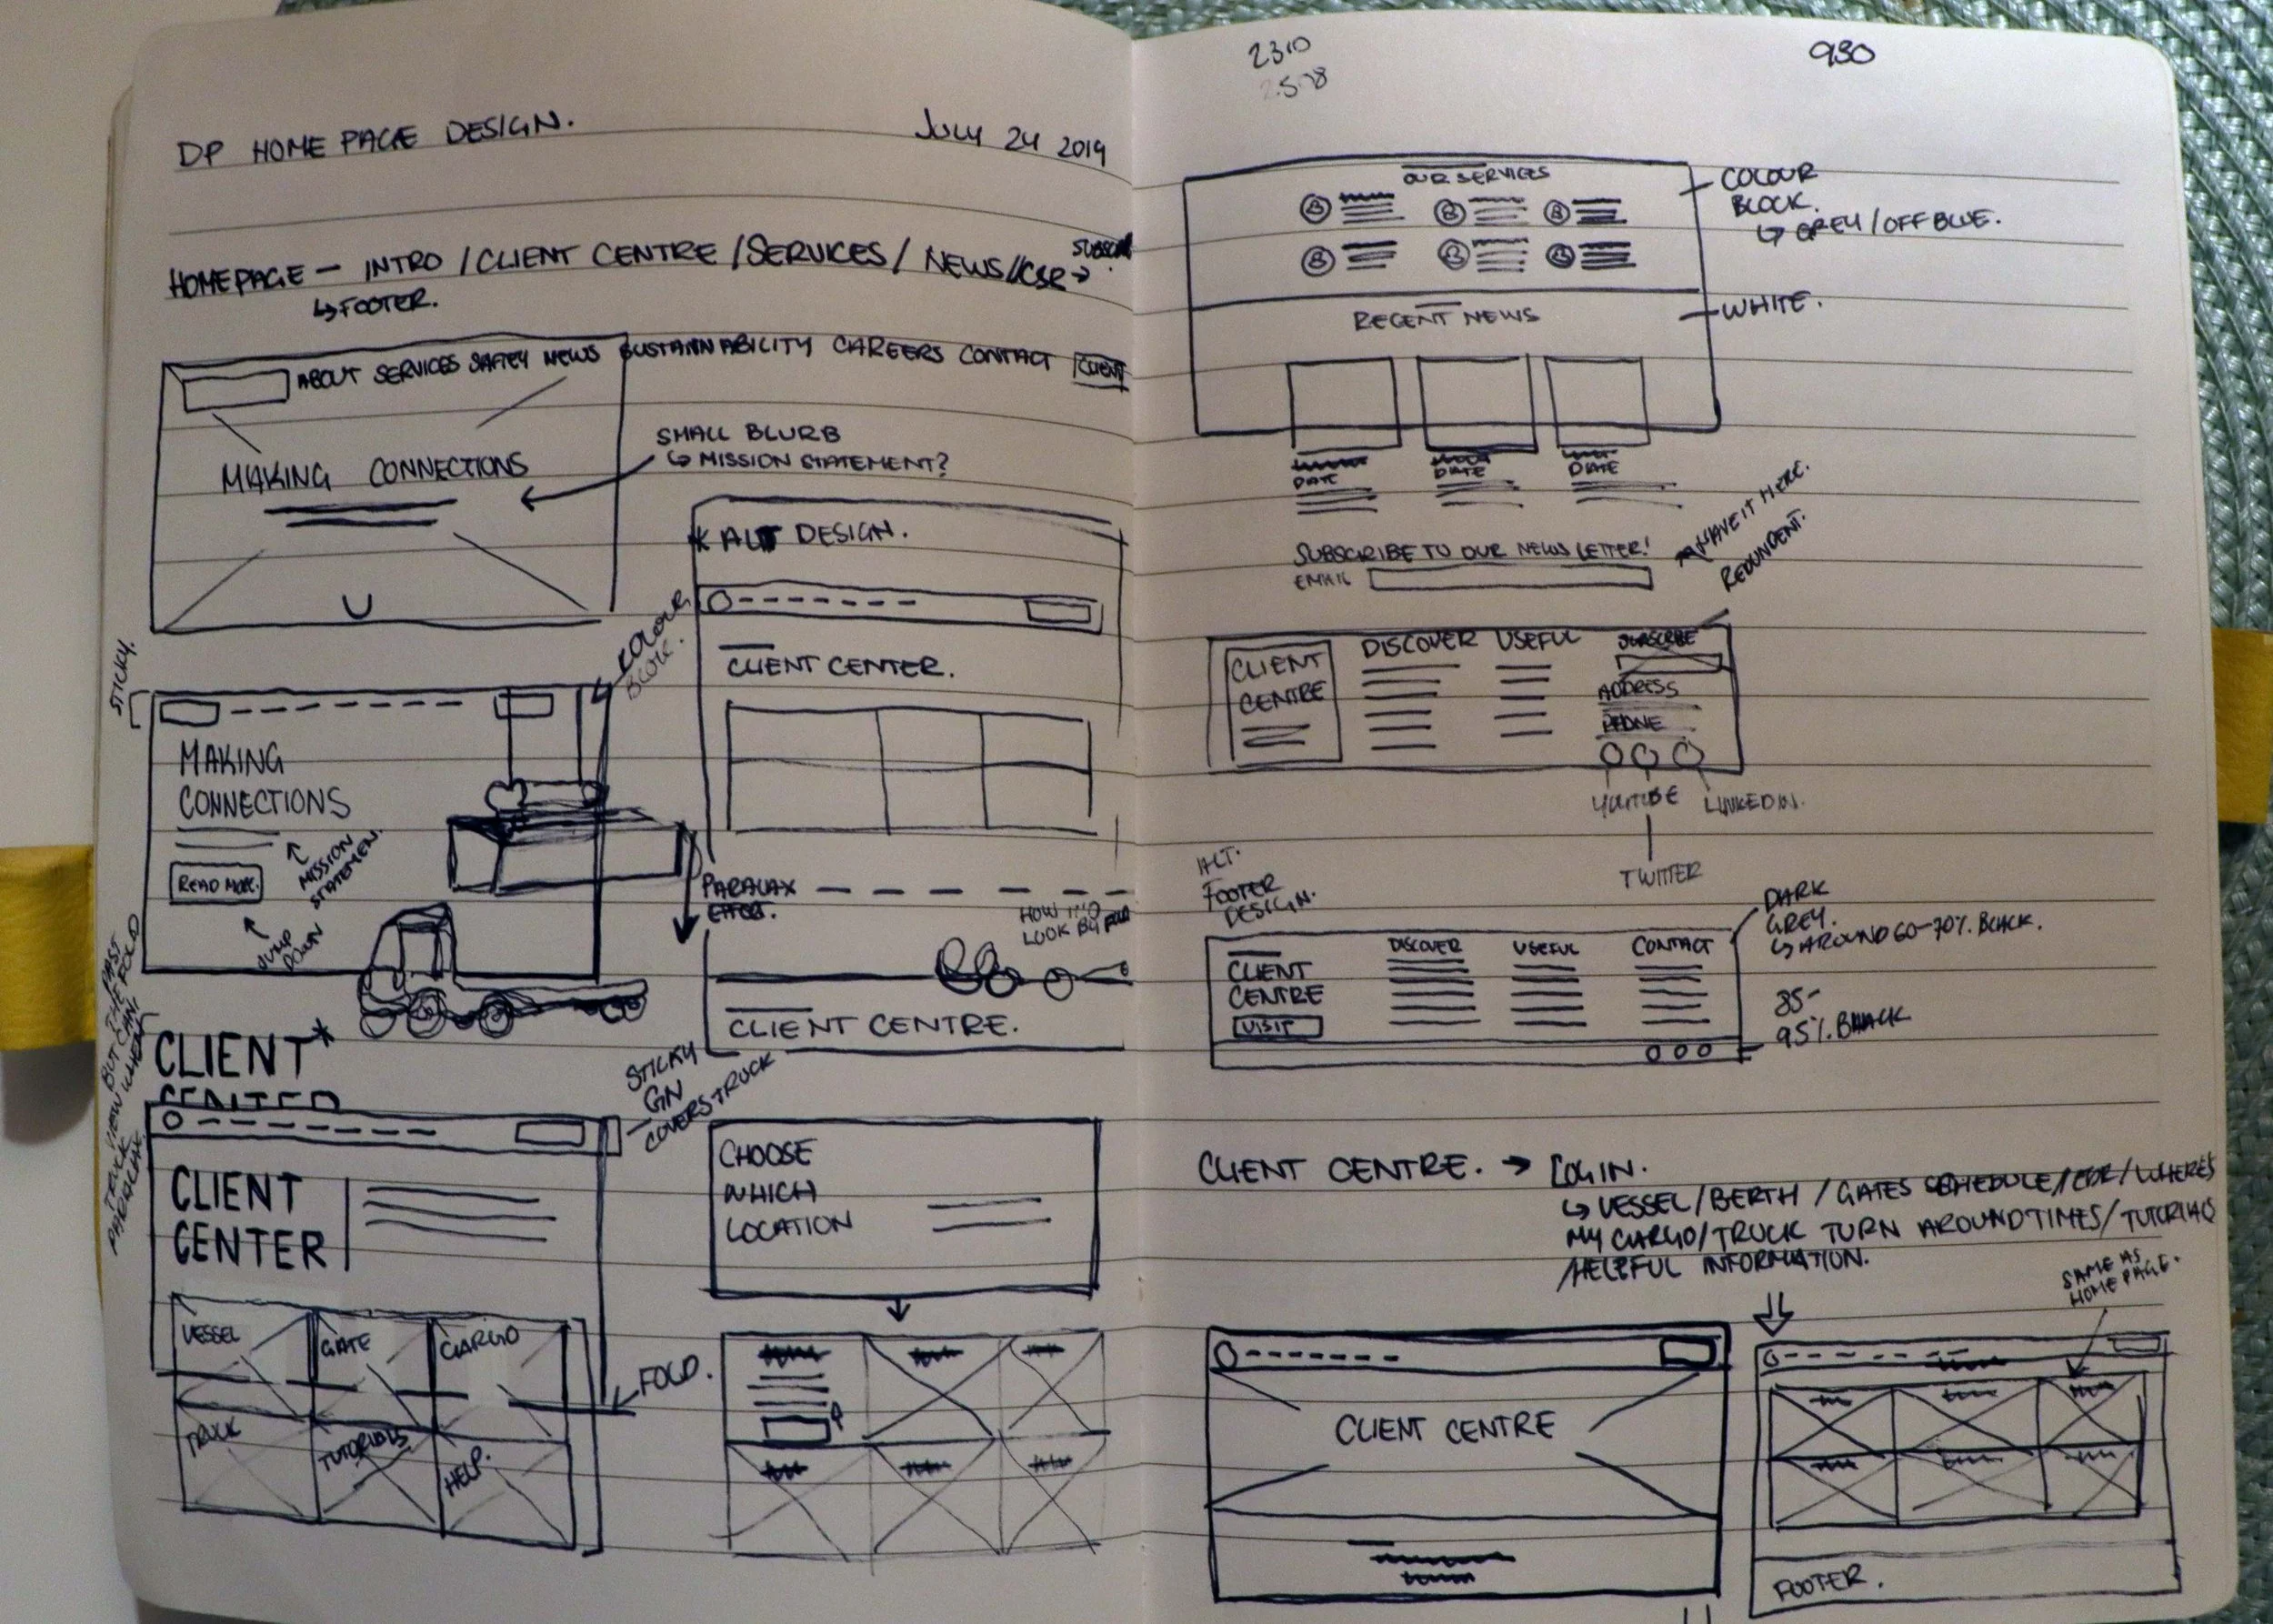 DP HOME PAGE DESIGN.
JULY 24 2019
HOMEPAGE – INTRO / CLIENT CENTRE / SERVICES / NEWS / CSR →
↳ FOOTER.
ABOUT SERVICES SAFTEY NEWS SUSTAINABILITY CAREERS CONTACT CLIENT
MAKING CONNECTIONS
SMALL BLURB
↳ MISSION STATEMENT?
* ALT DESIGN.
CLIENT CENTER.
STICKY.
COLOUR
BLOCK.
MAKING
CONNECTIONS
READ MORE.
MISSION
STATEMENT.
JUMP
DOWN
PARALAX
EFFECT.
HOW
LOOK
CLIENT CENTRE.
PAST
BUT THE FOLD
VIEW WHEN
TRUCK
CLIENT*
CENTER
STICKY
COVERS TRUCK
CLIENT
CENTER
VESSEL
GATE
CARGO
TRUCK
TUTORIALS
HELP.
FOLD.
CHOOSE
WHICH
LOCATION
2310
930
OUR SERVICES
COLOUR
BLOCK.
↳ GREY / OFF BLUE.
RECENT NEWS
WHITE.
DATE
DATE
DATE
SUBSCRIBE TO OUR NEWS LETTER!
EMAIL
HAVE IT HERE.
REDUNDENT.
CLIENT
CENTRE
DISCOVER
USEFUL
SUBSCRIBE
ADDRESS
PHONE
YOUTUBE
LINKEDIN.
TWITTER
ALT.
FOOTER
DESIGN.
DARK
GREY.
↳ AROUND 60-70% BLACK.
CLIENT
CENTRE
VISIT
DISCOVER
USEFUL
CONTACT
85-
95% BLACK
CLIENT CENTRE. → LOGIN.
↳ VESSEL / BERTH / GATES SCHEDULE / EDR / WHERES
MY CARGO / TRUCK TURN AROUND TIMES / TUTORIALS
/ HELPFUL INFORMATION.
SAME AS
HOME PAGE.
CLIENT CENTRE
FOOTER.